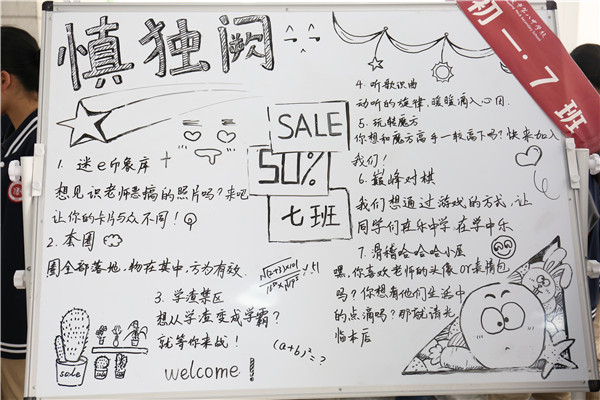 慎独阙
初一·7班
SALE
50%
七班
1. 迷e印象库
想见识老师恶搞的照片吗？来吧
让你的卡片与众不同！
2. 套圈
圈全部落地，物在其中，方为有效.
3. 学渣禁区
想从学渣变成学霸？
就等你来战！
(a+b)²=?
welcome!
sale
sale
sale
4. 听歌识曲
动听的旋律，暖暖滴入心田.
5. 玩转魔方
你想和魔方高手一较高下吗？快来加入
我们！
6. 巅峰对棋
我们想通过游戏的方式，让
同学们在乐中学，在学中乐
7. 滑稽哈哈哈小屋
嘿，你喜欢老师的头像or表情包
吗？你想看他们生活中
的点滴吗？那就请光
临本店